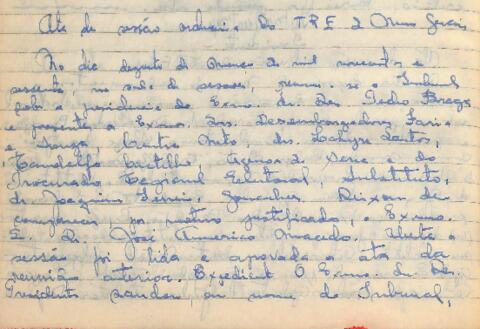 Ata de sessão ordinaria do TRE de Minas Gerais
No dia dezoito de março de mil novecentos e
sessenta, na sala de sessões, reuniu-se o Tribunal
sob a presidencia do Exmo. Sr. Des. Pedro Braga
e presentes os Exmos. Srs. Desembargadores Faria
e Souza, Neto, drs. Santos,
da Sena e do
Procurador Regional Eleitoral, Substituto,
dr. Joaquim Gonçalves. Deixou de
comparecer, por motivo justificado, o Exmo.
S. Dr. José Americo Macedo. Aberta a
sessão foi lida e aprovada a ata da
reunião anterior. Expediente O Exmo. Sr. Des.
Presidente saudou, em nome do Tribunal,